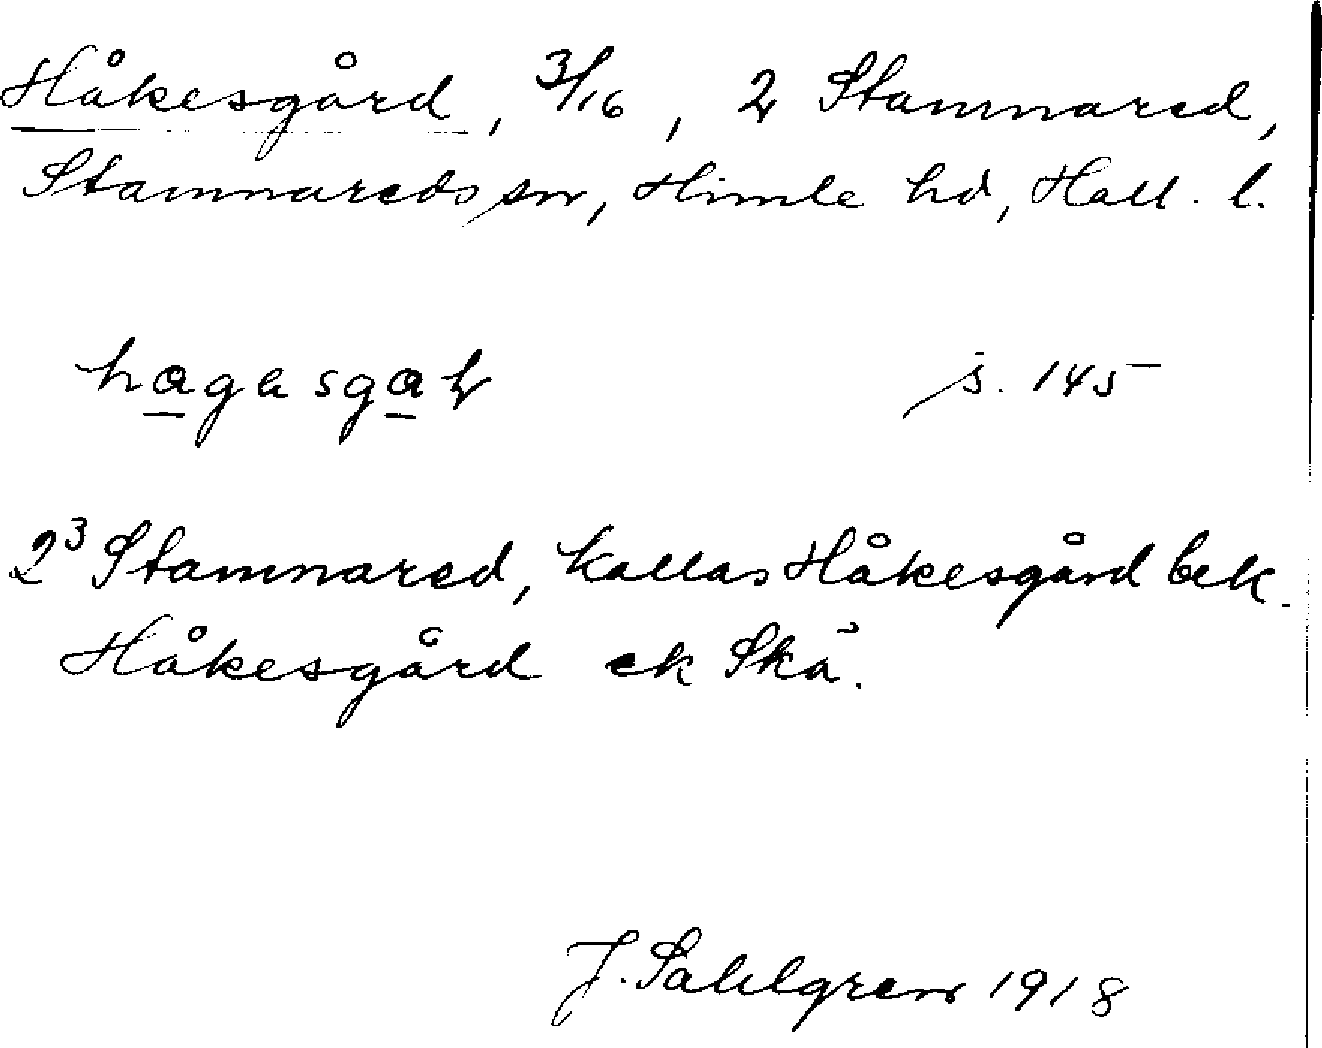 Håkesgård, 3/16, 2 Stamnared,
Stamnareds sn, Himle hd, Hall. l.
s. 145
2³ Stamnared, kallas Håkesgård bek.
Håkesgård ek Skä.
J. Sahlgren 1918